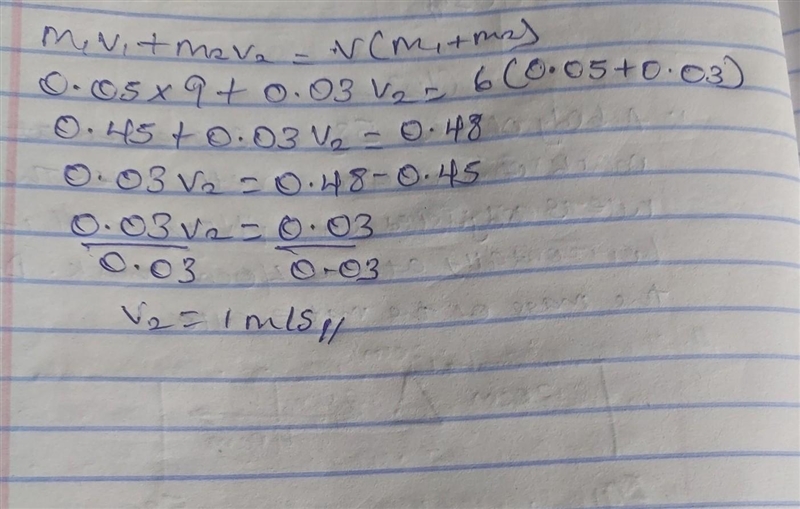 m₁v₁ + m₂v₂ = v(m₁+m₂)
0.05 × 9 + 0.03 v₂ = 6(0.05+0.03)
0.45 + 0.03 v₂ = 0.48
0.03 v₂ = 0.48 - 0.45
0.03 v₂ = 0.03
0.03 0.03
v₂ = 1 m/s //